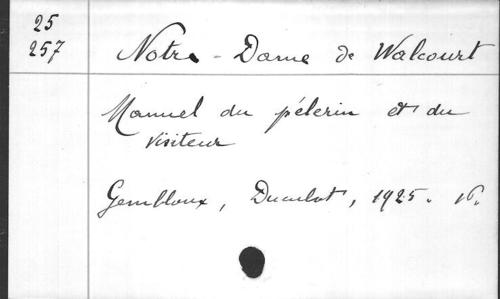 25
257
Notre-Dame de Walcourt
Manuel du pélerin et du
visiteur
Gembloux, Duculot, 1925. 16.